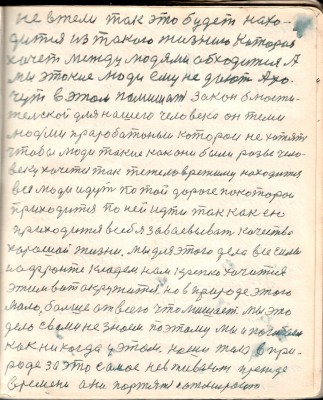 не в тели так это будет нахо-
дится из такого жизнию которая
хочет между людями обходится А
мы этокие люди ему не дают А хо-
чут в этом памишать закон блюсти-
тельской для нашего человека он теми
людми прарабатоный которои не хотят
чтобы люди такие как они были разве чело-
веку хочется так тежело времину находится
все люди идут по той дороге по которои
приходится по ней идти так как ею
приходится всебя завоевыват качество
харошай жизни. мы для этого дела все силы
на фронте кладем нам крепко хочится
этим вит окружится но в природе этого
мало, болше от всего что мишает мы это
дело сваим не знаем поэтаму мы и
как никогда у этом. наши тела в при-
роде за это самое не прежде
времень они портят